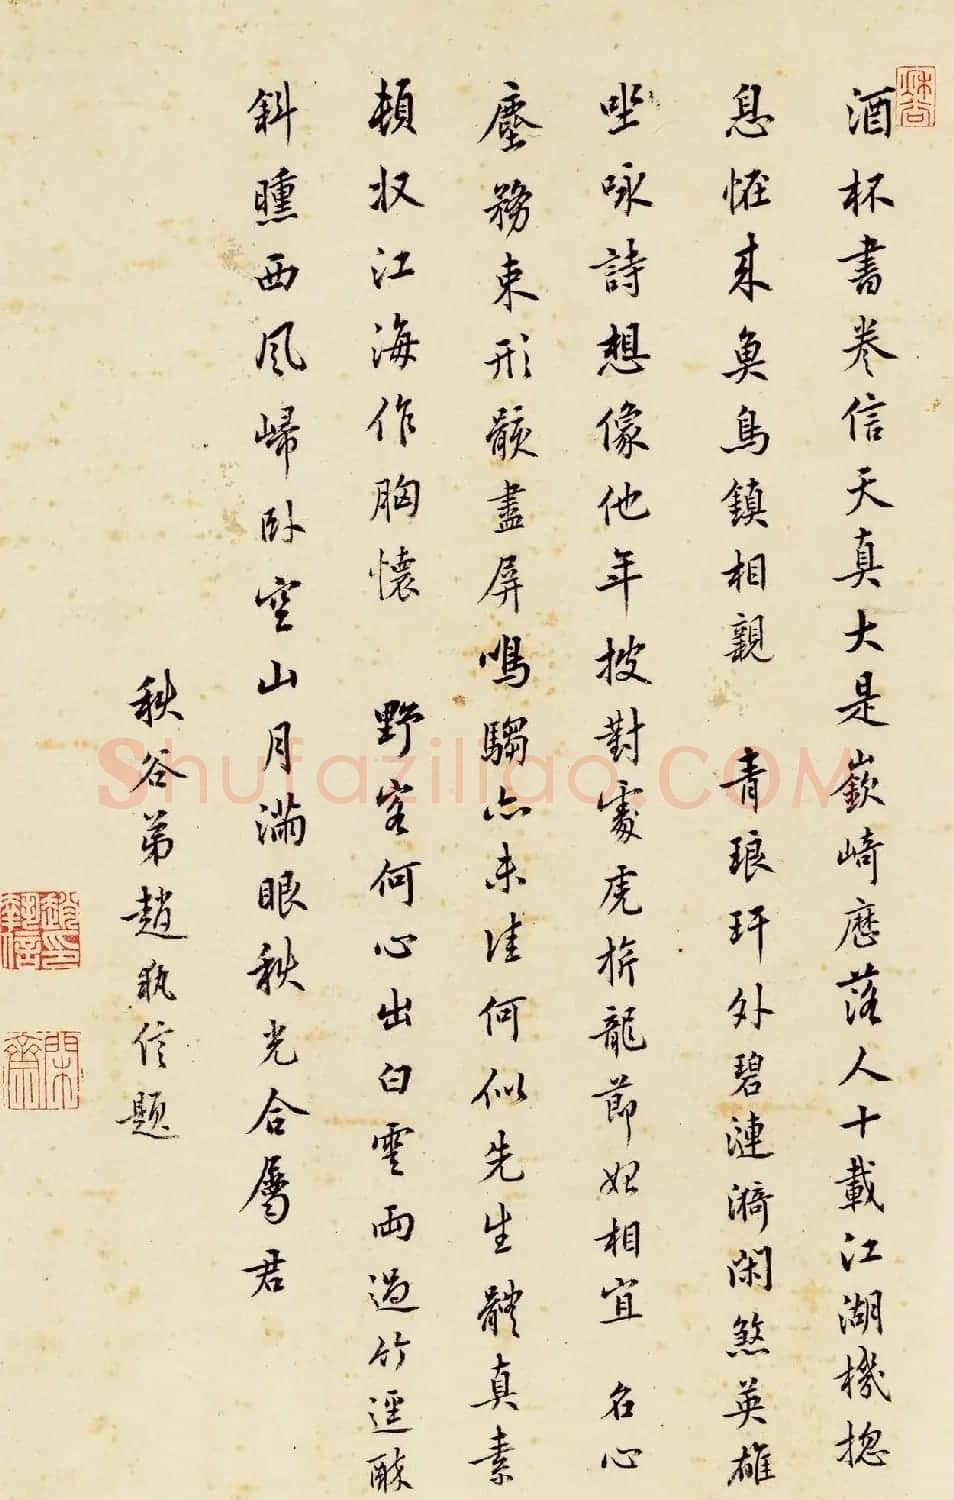 酒杯書卷信天真大是嶔崎歷落人十載江湖機揔
息恠來魚鳥鎮相親 青琅玕外碧漣漪閑煞英雄
坐咏詩想像他年披對處虎栴龍節姒相宜 名心
塵務束形骸盡屏鳴騶亦未佳何似先生體真素
頓收江海作胸懷 野客何心出白雲雨過竹逕
斜曛西風歸卧空山月滿眼秋光合屬君
秋谷弟趙執信題
秋谷
趙執信印
閑齋
Shufaziliao.COM